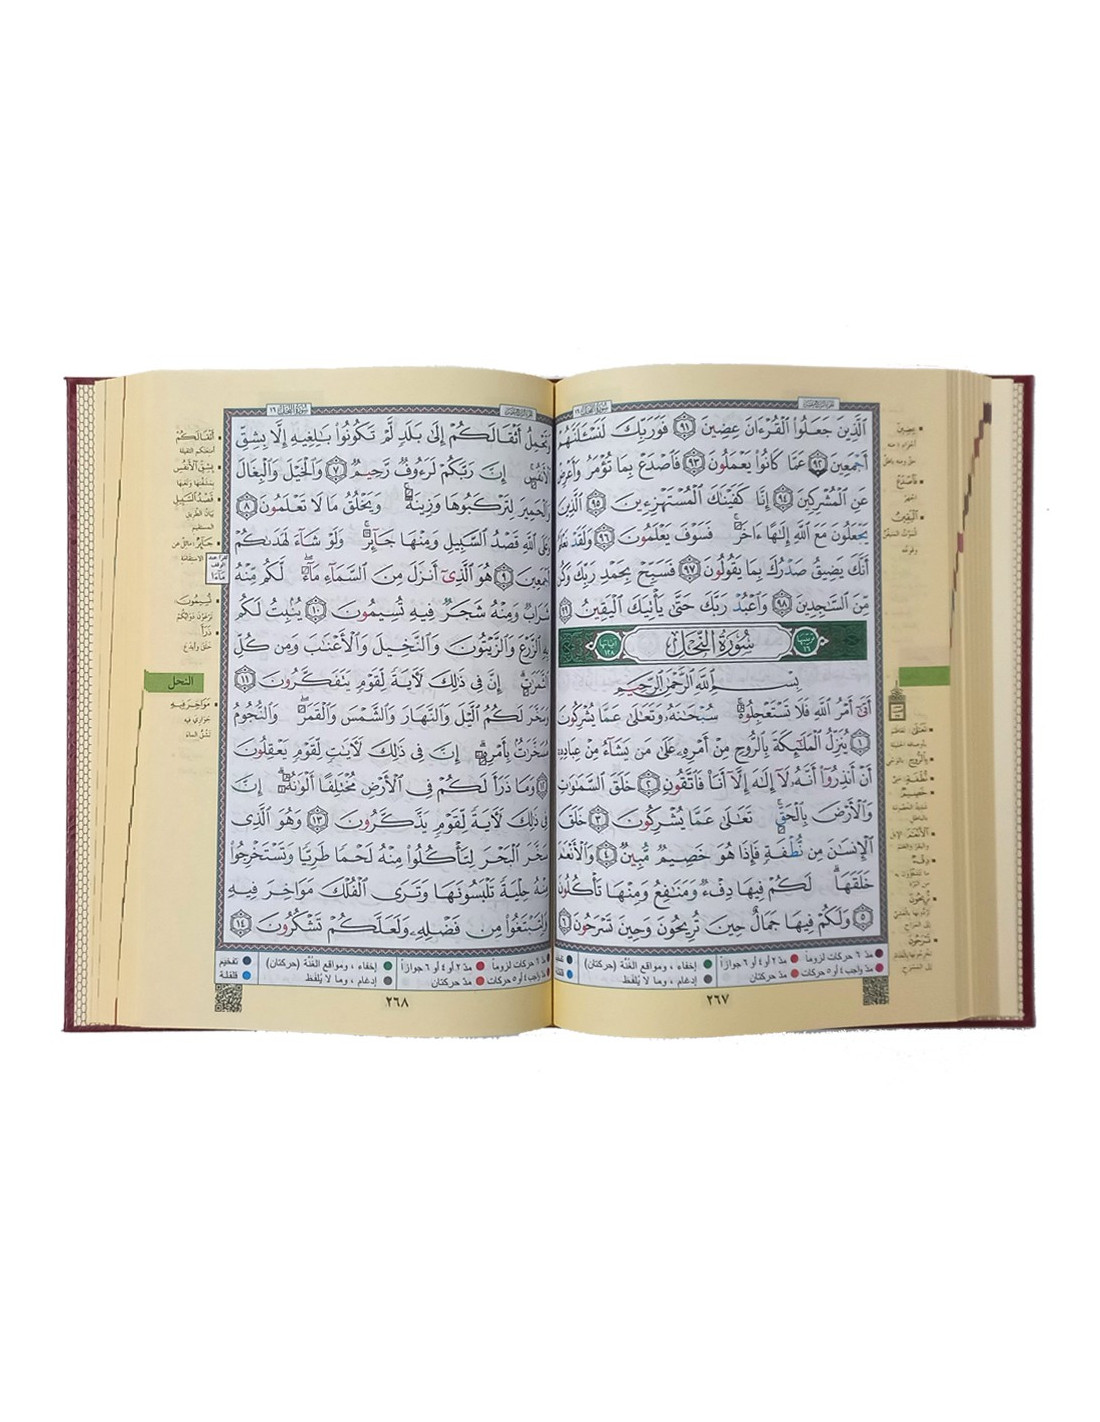 ٱلَّذِينَ جَعَلُوا۟ ٱلْقُرْءَانَ عِضِينَ ٩١ فَوَرَبِّكَ لَنَسْـَٔلَنَّهُمْ
أَجْمَعِينَ ٩٢ عَمَّا كَانُوا۟ يَعْمَلُونَ ٩٣ فَٱصْدَعْ بِمَا تُؤْمَرُ وَأَعْرِضْ
عَنِ ٱلْمُشْرِكِينَ ٩٤ إِنَّا كَفَيْنَـٰكَ ٱلْمُسْتَهْزِءِينَ ٩٥ ٱلَّذِينَ
يَجْعَلُونَ مَعَ ٱللَّهِ إِلَـٰهًا ءَاخَرَ فَسَوْفَ يَعْلَمُونَ ٩٦ وَلَقَدْ نَعْلَمُ
أَنَّكَ يَضِيقُ صَدْرُكَ بِمَا يَقُولُونَ ٩٧ فَسَبِّحْ بِحَمْدِ رَبِّكَ وَكُن
مِّنَ ٱلسَّـٰجِدِينَ ٩٨ وَٱعْبُدْ رَبَّكَ حَتَّىٰ يَأْتِيَكَ ٱلْيَقِينُ ٩٩
ترتيبها ١٦ سُورَةُ النَّحْلِ آياتها ١٢٨
بِسْمِ ٱللَّهِ ٱلرَّحْمَـٰنِ ٱلرَّحِيمِ
أَتَىٰٓ أَمْرُ ٱللَّهِ فَلَا تَسْتَعْجِلُوهُ سُبْحَـٰنَهُۥ وَتَعَـٰلَىٰ عَمَّا يُشْرِكُونَ
١ يُنَزِّلُ ٱلْمَلَـٰٓئِكَةَ بِٱلرُّوحِ مِنْ أَمْرِهِۦ عَلَىٰ مَن يَشَآءُ مِنْ عِبَادِهِۦٓ
أَنْ أَنذِرُوٓا۟ أَنَّهُۥ لَآ إِلَـٰهَ إِلَّآ أَنَا۠ فَٱتَّقُونِ ٢ خَلَقَ ٱلسَّمَـٰوَٰتِ
وَٱلْأَرْضَ بِٱلْحَقِّ تَعَـٰلَىٰ عَمَّا يُشْرِكُونَ ٣ خَلَقَ
ٱلْإِنسَـٰنَ مِن نُّطْفَةٍ فَإِذَا هُوَ خَصِيمٌ مُّبِينٌ ٤ وَٱلْأَنْعَـٰمَ
خَلَقَهَا لَكُمْ فِيهَا دِفْءٌ وَمَنَـٰفِعُ وَمِنْهَا تَأْكُلُونَ
٥ وَلَكُمْ فِيهَا جَمَالٌ حِينَ تُرِيحُونَ وَحِينَ تَسْرَحُونَ ٦
مدّ ٦ حركات لزوماً مدّ ٢ أو ٤ أو ٦ جوازاً إخفاء ، ومواقع الغُنَّة (حركتان)
مدّ واجب ٤ أو ٥ حركات مدّ حركتان إدغام ، وما لا يُلفَظ
٢٦٧
وَتَحْمِلُ أَثْقَالَكُمْ إِلَىٰ بَلَدٍ لَّمْ تَكُونُوا۟ بَـٰلِغِيهِ إِلَّا بِشِقِّ
ٱلْأَنفُسِ إِنَّ رَبَّكُمْ لَرَءُوفٌ رَّحِيمٌ ٧ وَٱلْخَيْلَ وَٱلْبِغَالَ
وَٱلْحَمِيرَ لِتَرْكَبُوهَا وَزِينَةً وَيَخْلُقُ مَا لَا تَعْلَمُونَ ٨
وَعَلَى ٱللَّهِ قَصْدُ ٱلسَّبِيلِ وَمِنْهَا جَآئِرٌ وَلَوْ شَآءَ لَهَدَىٰكُمْ
أَجْمَعِينَ ٩ هُوَ ٱلَّذِىٓ أَنزَلَ مِنَ ٱلسَّمَآءِ مَآءً لَّكُم مِّنْهُ
شَرَابٌ وَمِنْهُ شَجَرٌ فِيهِ تُسِيمُونَ ١٠ يُنۢبِتُ لَكُم
بِهِ ٱلزَّرْعَ وَٱلزَّيْتُونَ وَٱلنَّخِيلَ وَٱلْأَعْنَـٰبَ وَمِن كُلِّ
ٱلثَّمَرَٰتِ إِنَّ فِى ذَٰلِكَ لَـَٔايَةً لِّقَوْمٍ يَتَفَكَّرُونَ ١١
وَسَخَّرَ لَكُمُ ٱلَّيْلَ وَٱلنَّهَارَ وَٱلشَّمْسَ وَٱلْقَمَرَ وَٱلنُّجُومُ
مُسَخَّرَٰتٌۢ بِأَمْرِهِۦٓ إِنَّ فِى ذَٰلِكَ لَـَٔايَـٰتٍ لِّقَوْمٍ يَعْقِلُونَ
١٢ وَمَا ذَرَأَ لَكُمْ فِى ٱلْأَرْضِ مُخْتَلِفًا أَلْوَٰنُهُۥٓ إِنَّ
فِى ذَٰلِكَ لَـَٔايَةً لِّقَوْمٍ يَذَّكَّرُونَ ١٣ وَهُوَ ٱلَّذِى
سَخَّرَ ٱلْبَحْرَ لِتَأْكُلُوا۟ مِنْهُ لَحْمًا طَرِيًّا وَتَسْتَخْرِجُوا۟
مِنْهُ حِلْيَةً تَلْبَسُونَهَا وَتَرَى ٱلْفُلْكَ مَوَاخِرَ فِيهِ
وَلِتَبْتَغُوا۟ مِن فَضْلِهِۦ وَلَعَلَّكُمْ تَشْكُرُونَ ١٤
مدّ ٦ حركات لزوماً مدّ ٢ أو ٤ أو ٦ جوازاً إخفاء ، ومواقع الغُنَّة (حركتان) تفخيم
مدّ واجب ٤ أو ٥ حركات مدّ حركتان إدغام ، وما لا يُلفَظ قلقلة
٢٦٨
أَثْقَالَكُمْ
أمتعتكم الثقيلة
بِشِقِّ ٱلْأَنفُسِ
قَصْدُ ٱلسَّبِيلِ
بيان الطريق
المستقيم
جَآئِرٌ : مائل عن
الاستقامة
تُسِيمُونَ
ذَرَأَ
خلق وأبدع
النحل
مَوَاخِرَ فِيهِ
جواري فيه